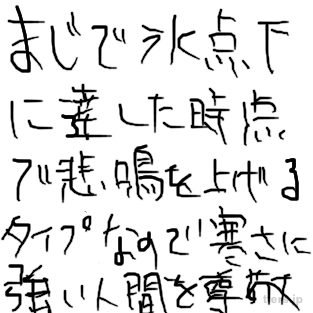 まじで氷点下
に達した時点
で悲鳴を上げる
タイプなので寒さに
強い人間を尊敬